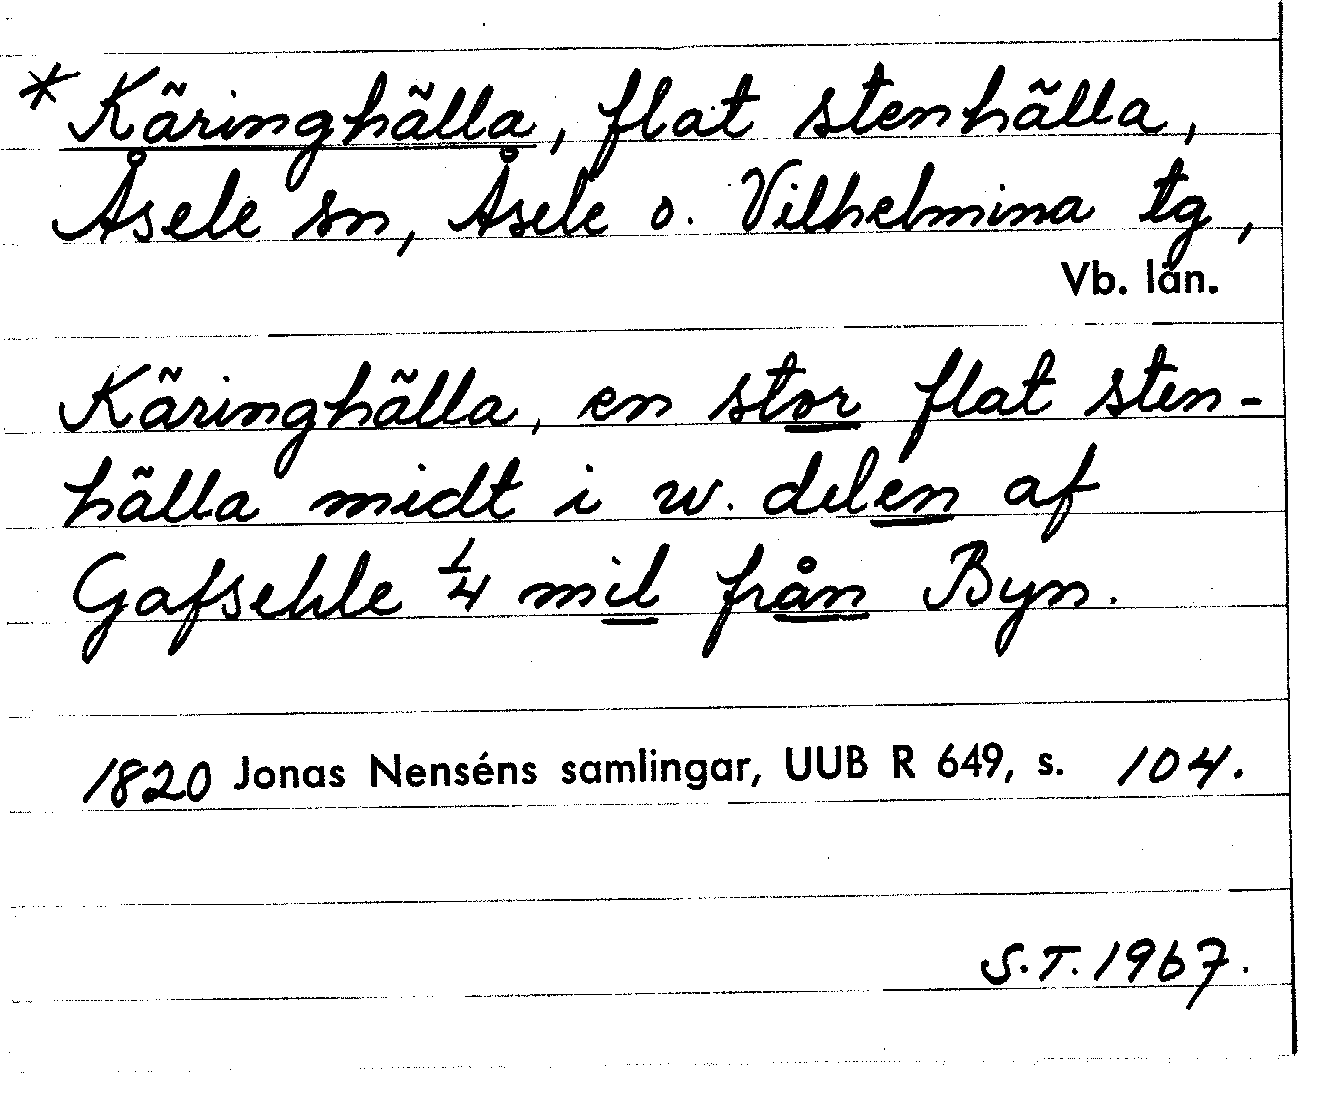 * Käringhälla, flat stenhälla,
Åsele sn, Åsele o. Vilhelmina tg,
Vb. län.
Käringhälla, en stor flat sten-
hälla midt i w. delen af
Gafsehle 1/4 mil från Byn.
1820 Jonas Nenséns samlingar, UUB R 649, s. 104.
S.T. 1967.